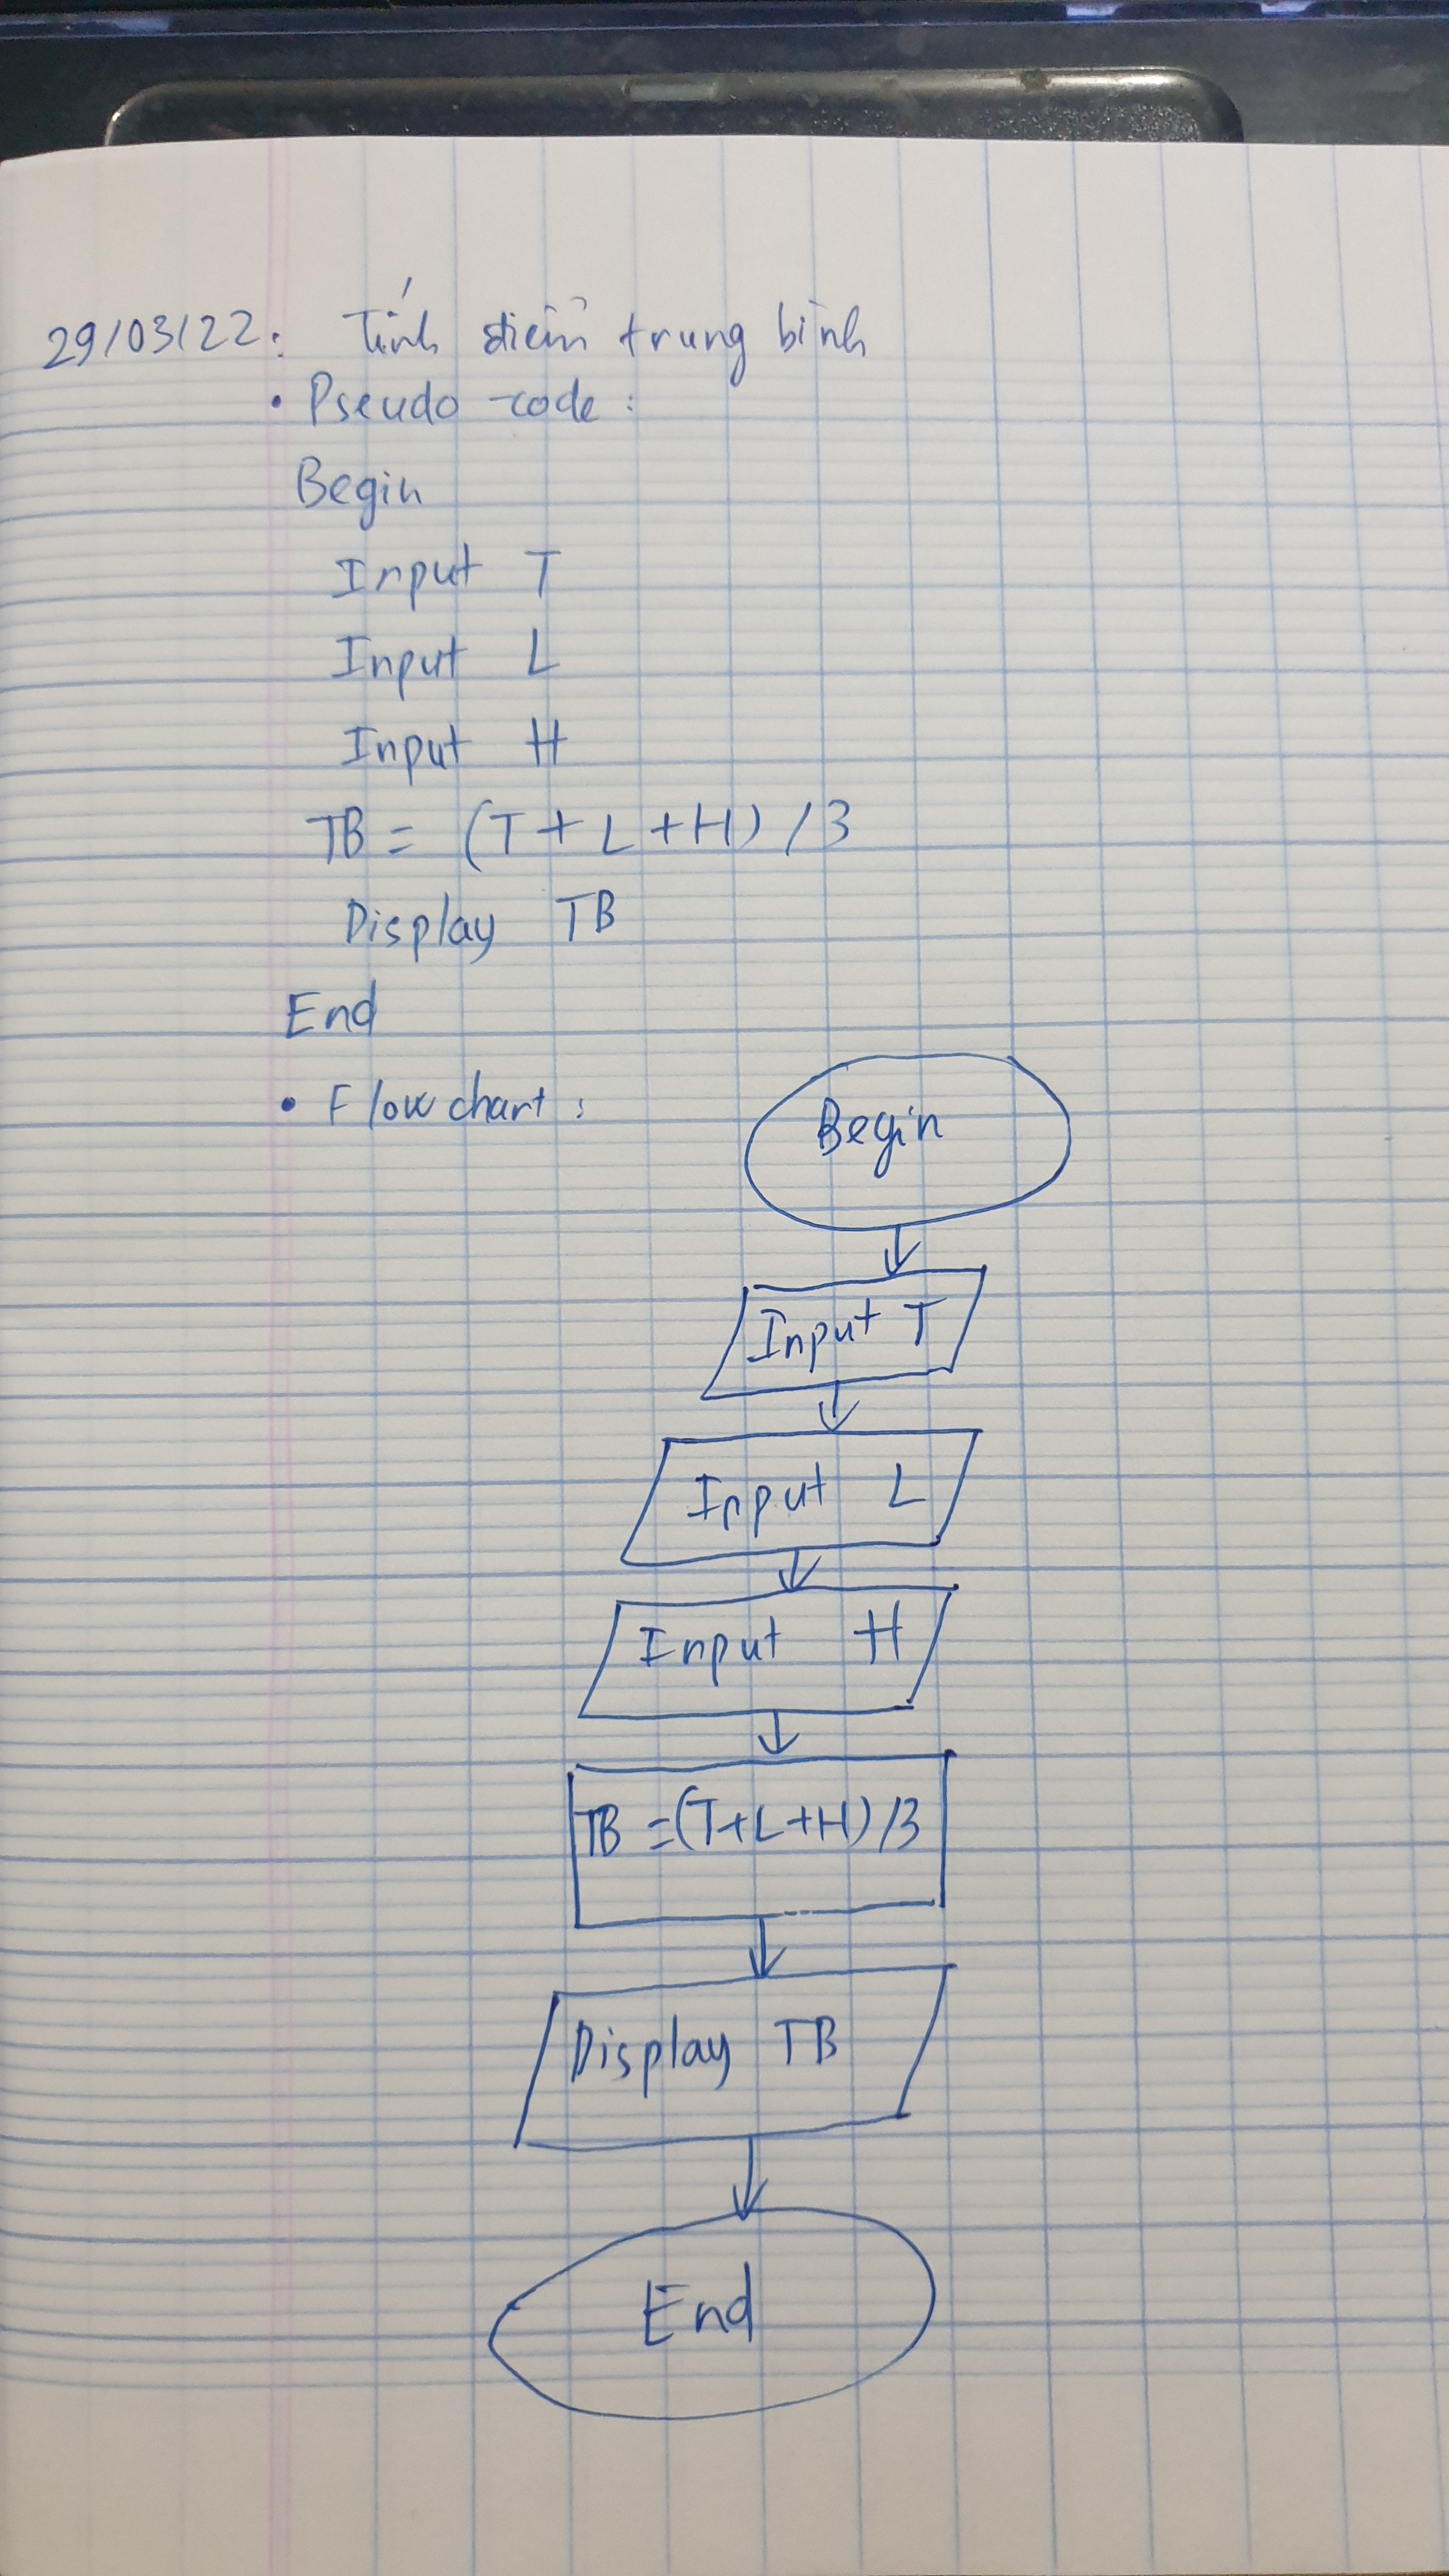 29/03/22: Tính điểm trung bình
• Pseudo-code:
Begin
Input T
Input L
Input H
TB = (T + L + H) / 3
Display TB
End
• Flowchart:
Begin
Input T
Input L
Input H
TB = (T+L+H)/3
Display TB
End